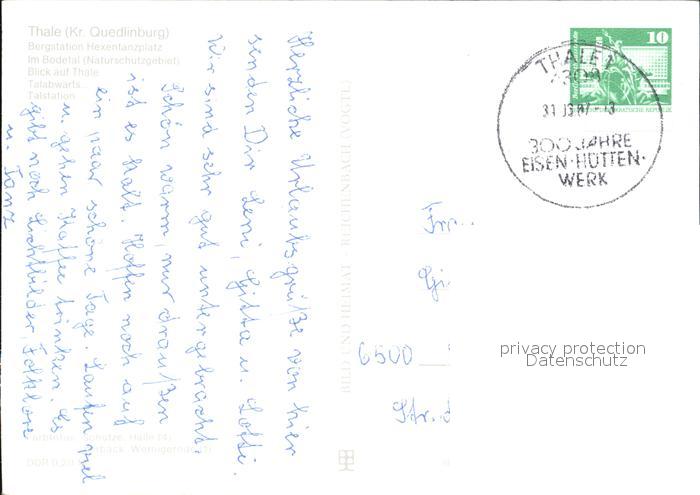 Thale (Kr. Quedlinburg)
Bergstation Hexentanzplatz
Im Bodetal (Naturschutzgebiet)
Blick auf Thale
Talabwärts
Talstation
Herzliche Urlaubsgrüße von hier
senden Dir Leni, Gitta u. Lotti.
Wir sind sehr gut untergebracht.
Schön warm, nur draußen
ist es kalt. Hoffen noch auf
ein paar schöne Tage. Laufen viel
u. gehen Kaffee trinken. Es
gibt noch Lichtbilder, Folklore
u. Tanz
BILD UND HEIMAT · REICHENBACH (VOGTL)
10
THALE 1
4308
300 JAHRE
EISEN·HÜTTEN·
WERK
6500
Str. d
privacy protection
Datenschutz